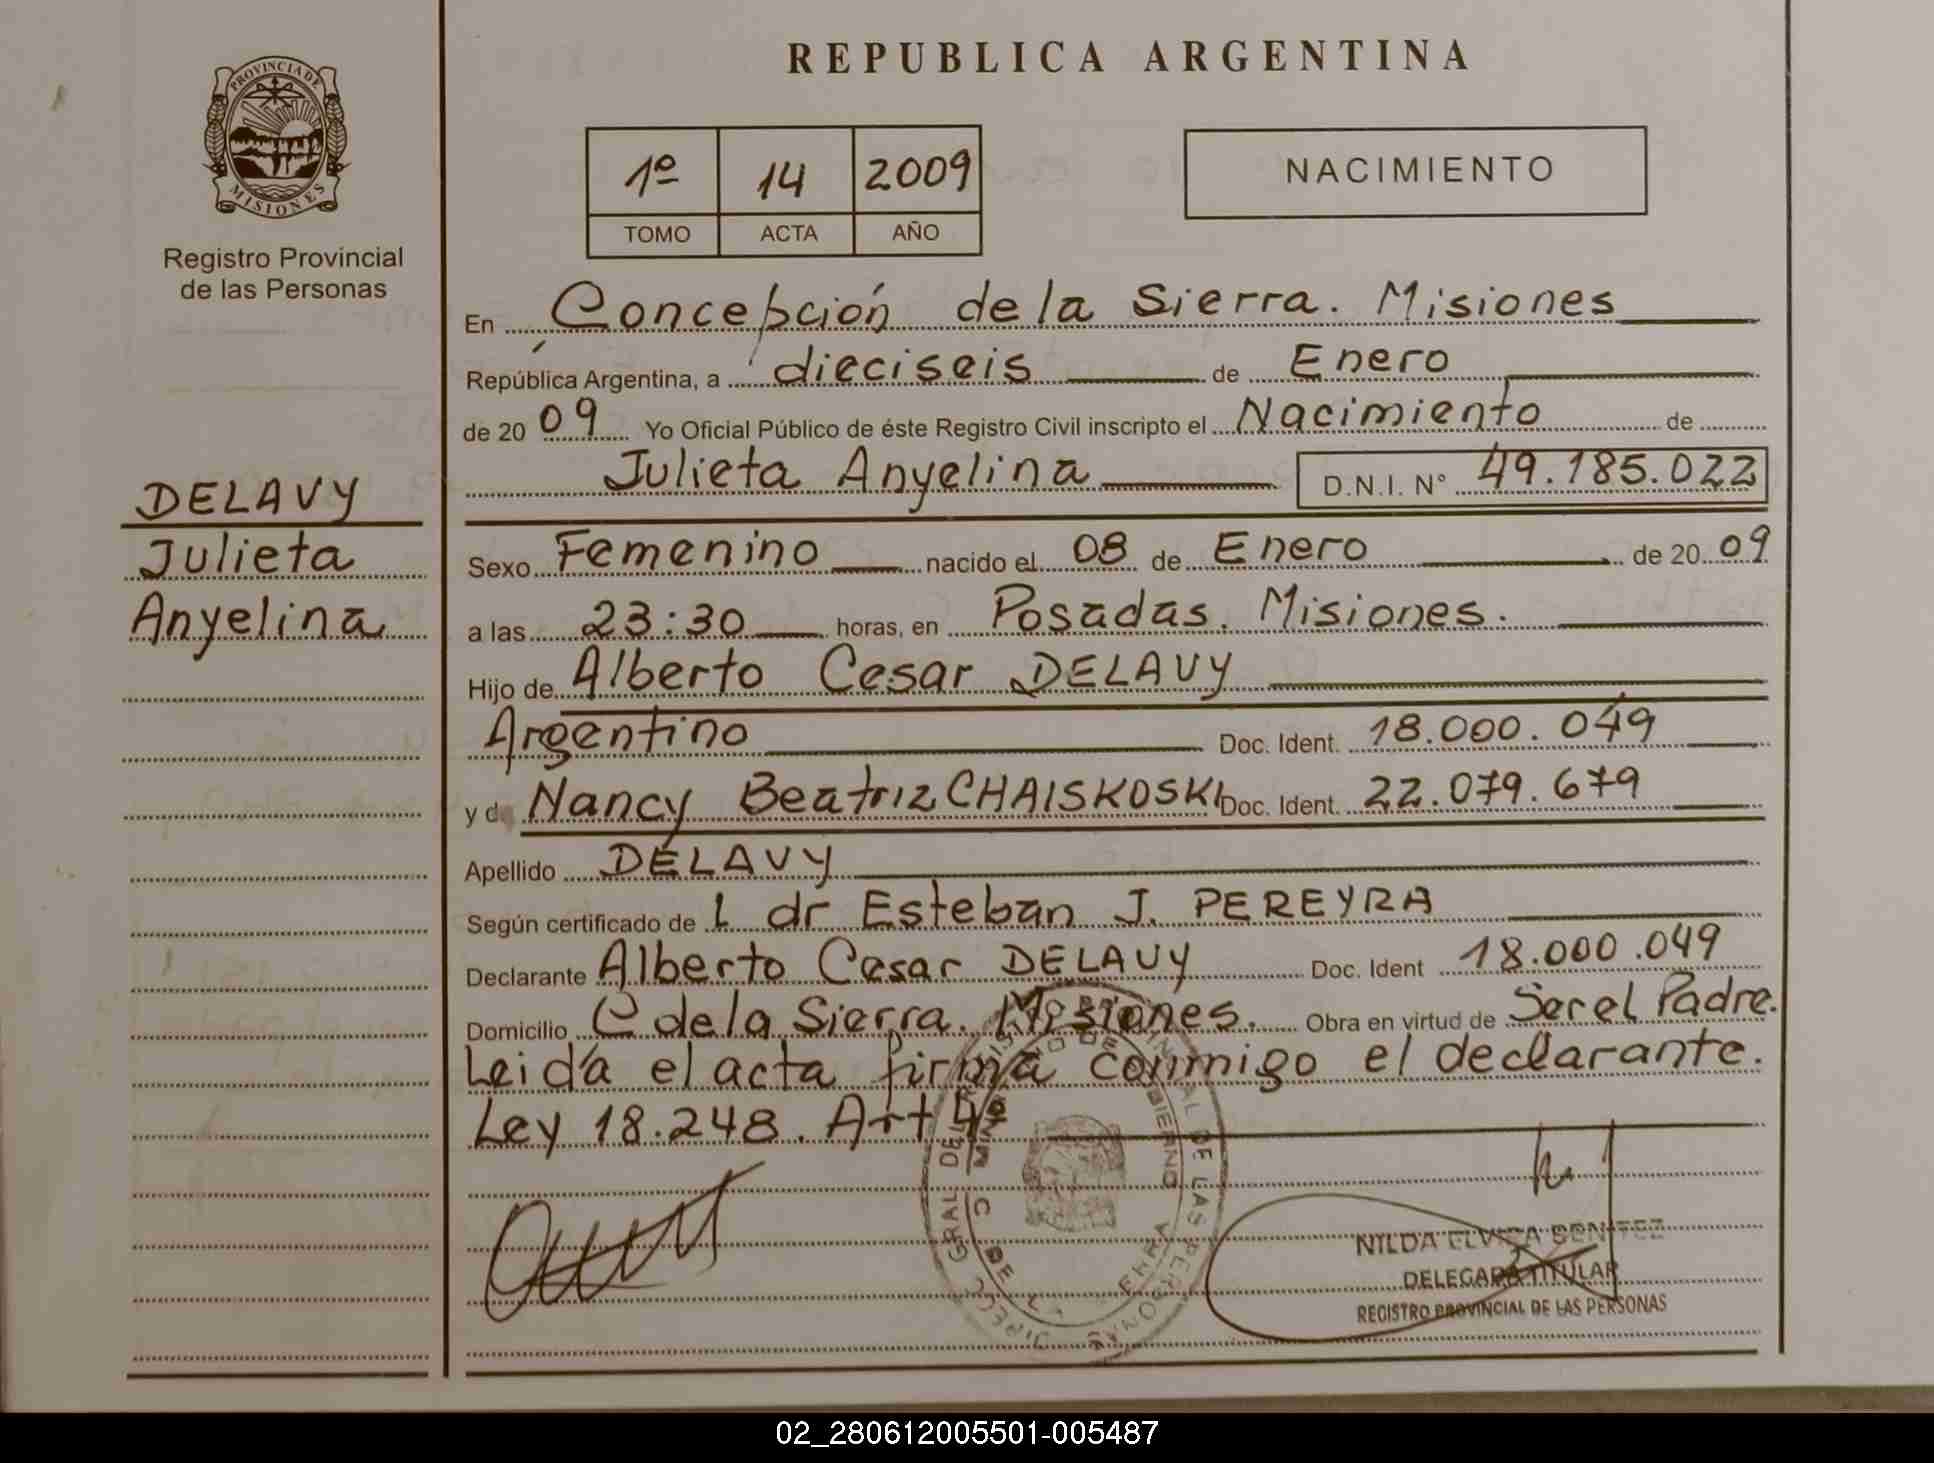 PROVINCIA DE
MISIONES
Registro Provincial
de las Personas
DELAVY
Julieta
Anyelina
REPUBLICA ARGENTINA
1º 14 2009
TOMO ACTA AÑO
NACIMIENTO
En Concepción de la Sierra. Misiones
República Argentina, a dieciseis de Enero
de 20 09 Yo Oficial Público de éste Registro Civil inscripto el Nacimiento de
Julieta Anyelina D.N.I. N° 49.185.022
Sexo Femenino nacido el 08 de Enero de 20 09
a las 23:30 horas, en Posadas. Misiones.
Hijo de Alberto Cesar DELAVY
Argentino Doc. Ident. 18.000.049
y de Nancy Beatriz CHAISKOSKI Doc. Ident. 22.079.679
Apellido DELAVY
Según certificado de L dr Esteban J. PEREYRA
Declarante Alberto Cesar DELAVY Doc. Ident 18.000.049
Domicilio C de la Sierra. Misiones. Obra en virtud de Ser el Padre.
Leida el acta firma conmigo el declarante.
Ley 18.248. Art 4º
NILDA ELVIRA BENITEZ
DELEGADA TITULAR
REGISTRO PROVINCIAL DE LAS PERSONAS
02_280612005501-005487